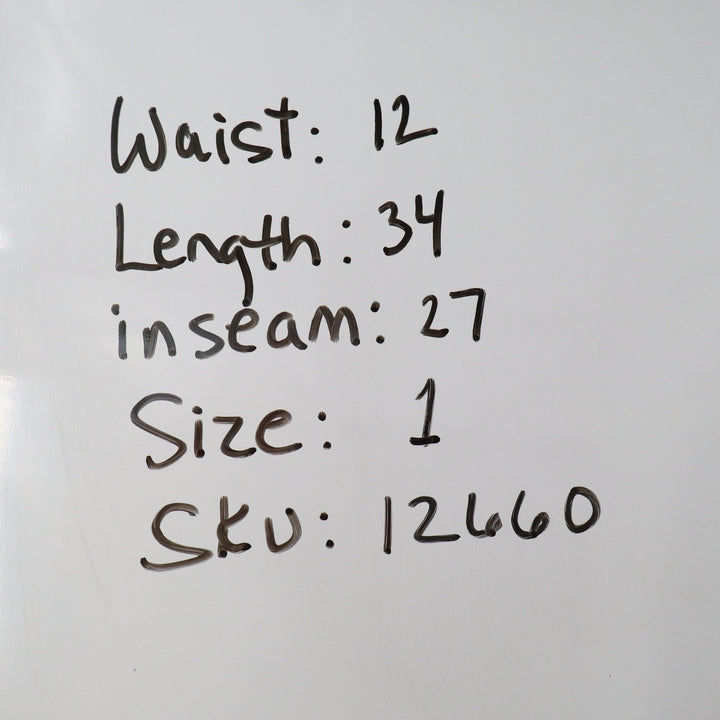 Waist: 12
Length: 34
inseam: 27
Size: 1
SKU: 12660